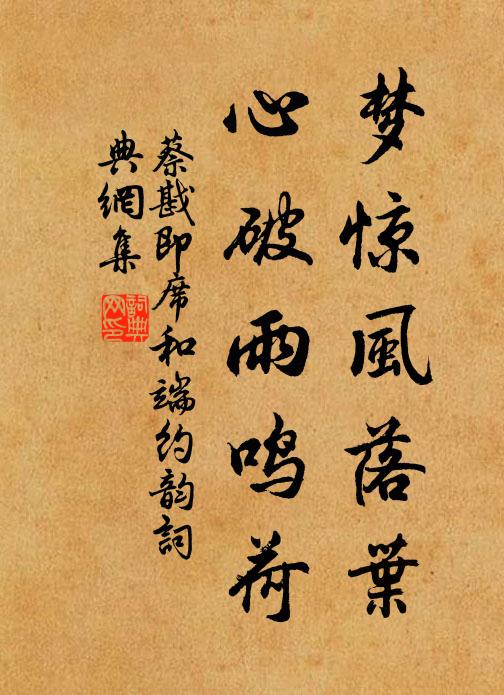 梦惊風落葉
心破雨鸣荷
蔡戡即席和端约韵詞
典網集
詞典
网印